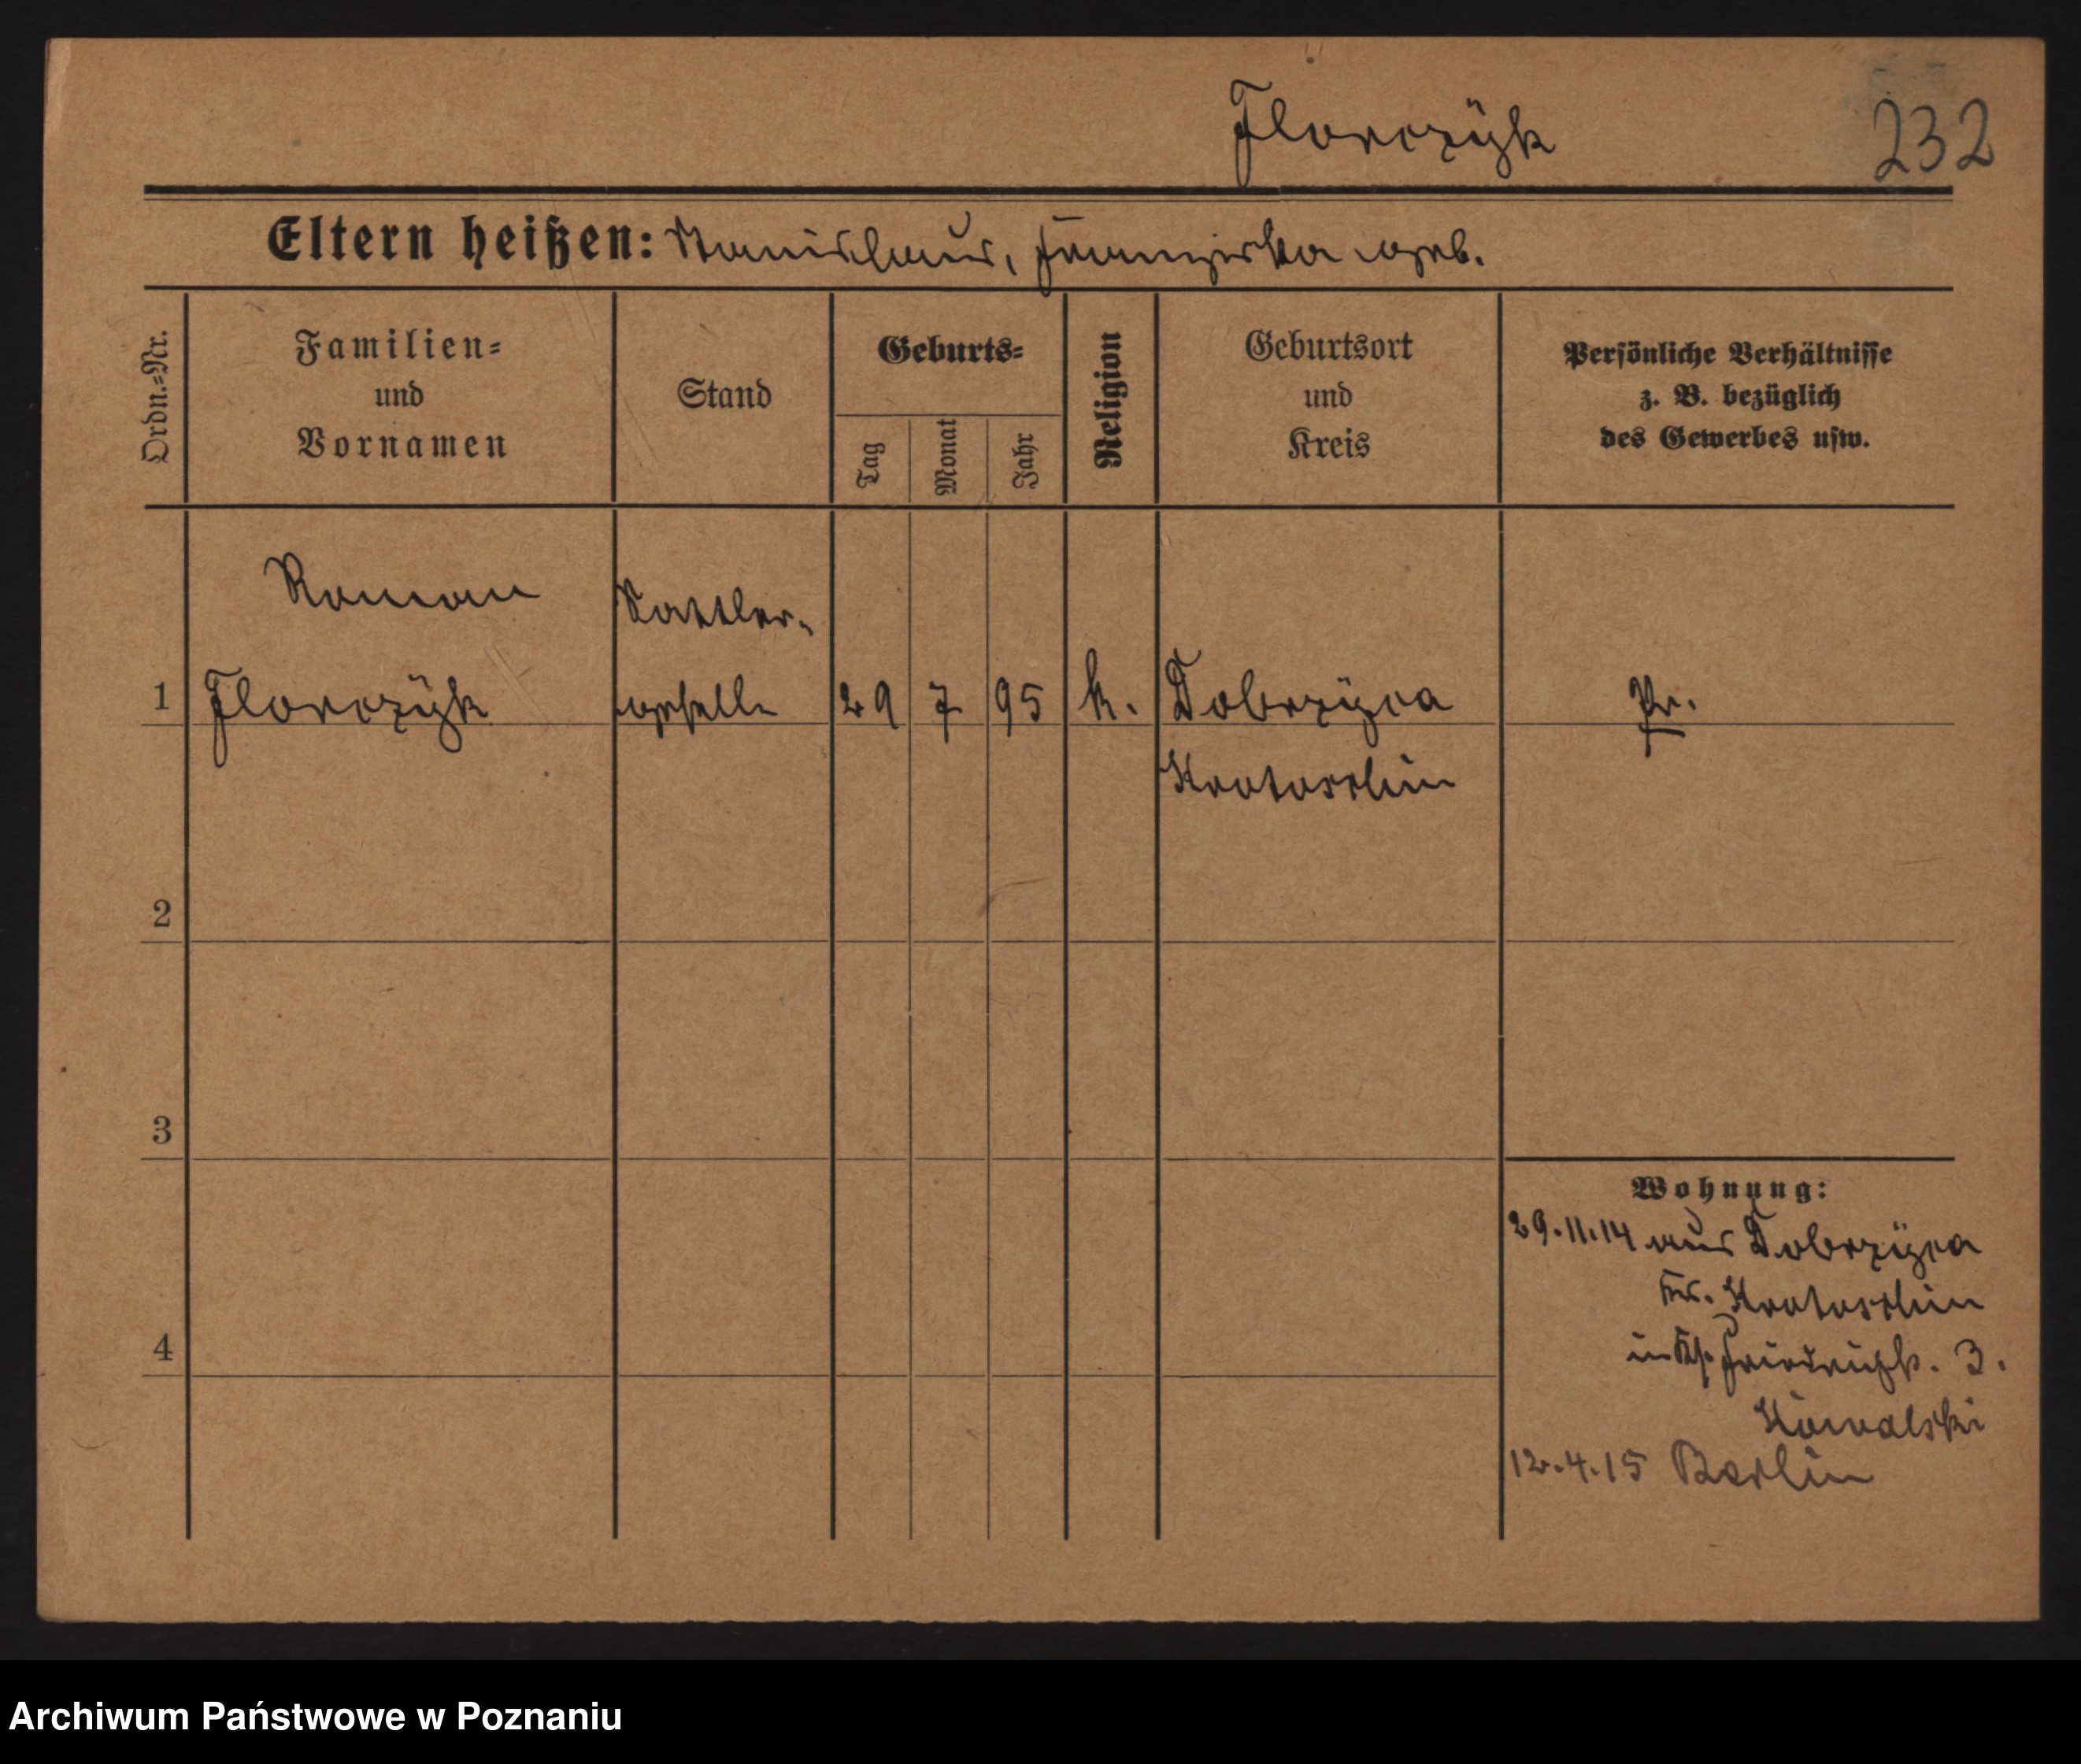 Florczÿk 232
Eltern heißen: Stanislaus, Franziska geb.
Ordn.-Nr.
Familien-
und
Vornamen
Stand
Geburts-
Tag
Monat
Jahr
Religion
Geburtsort
und
Kreis
Persönliche Verhältnisse
z. B. bezüglich
des Gewerbes usw.
Roman Sattler-
1 Florczÿk geselle 29 7 95 k. Dobrzÿca Pr.
Krotoschin
2
3
Wohnung:
29.11.14 aus Dobrzÿca
Kr. Krotoschin
4 in Friedrichst. 3.
Kowalski
12.4.15 Berlin
Archiwum Państwowe w Poznaniu